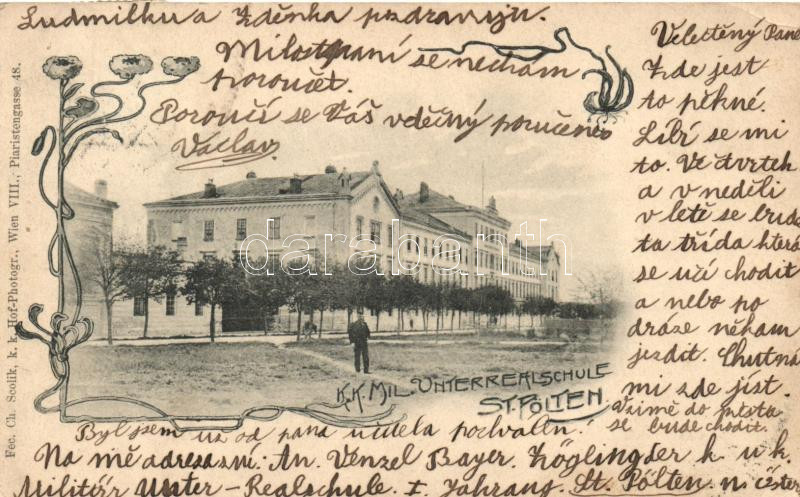 Ludmilku a Zděnka pozdravuju.
Milostpaní se nechám
poroučet.
Poroučí se Váš vděčný poručenec
Václav
Velectěný Pane
Zde jest
to pěkné.
Líbí se mi
to. Ve čtvrtek
a v neděli
v létě se bude
ta třída která
se učí chodit
a nebo po
dráze někam
jezdit. Chutná
mi zde jíst.
V zimě do města
se bude chodit.
Fec. Ch. Scolik, k. k. Hof-Photogr., Wien VIII., Piaristengasse 48.
darabanth.com
K.K. MIL. UNTERREALSCHULE
ST. PÖLTEN.
Byl jsem už od pana učitela pochválen!
Na mě adresa zní: An Venzel Bayer. Zöglingder k. u k.
Militär Unter-Realschule I. Jahrang. St. Pölten. n. Öster